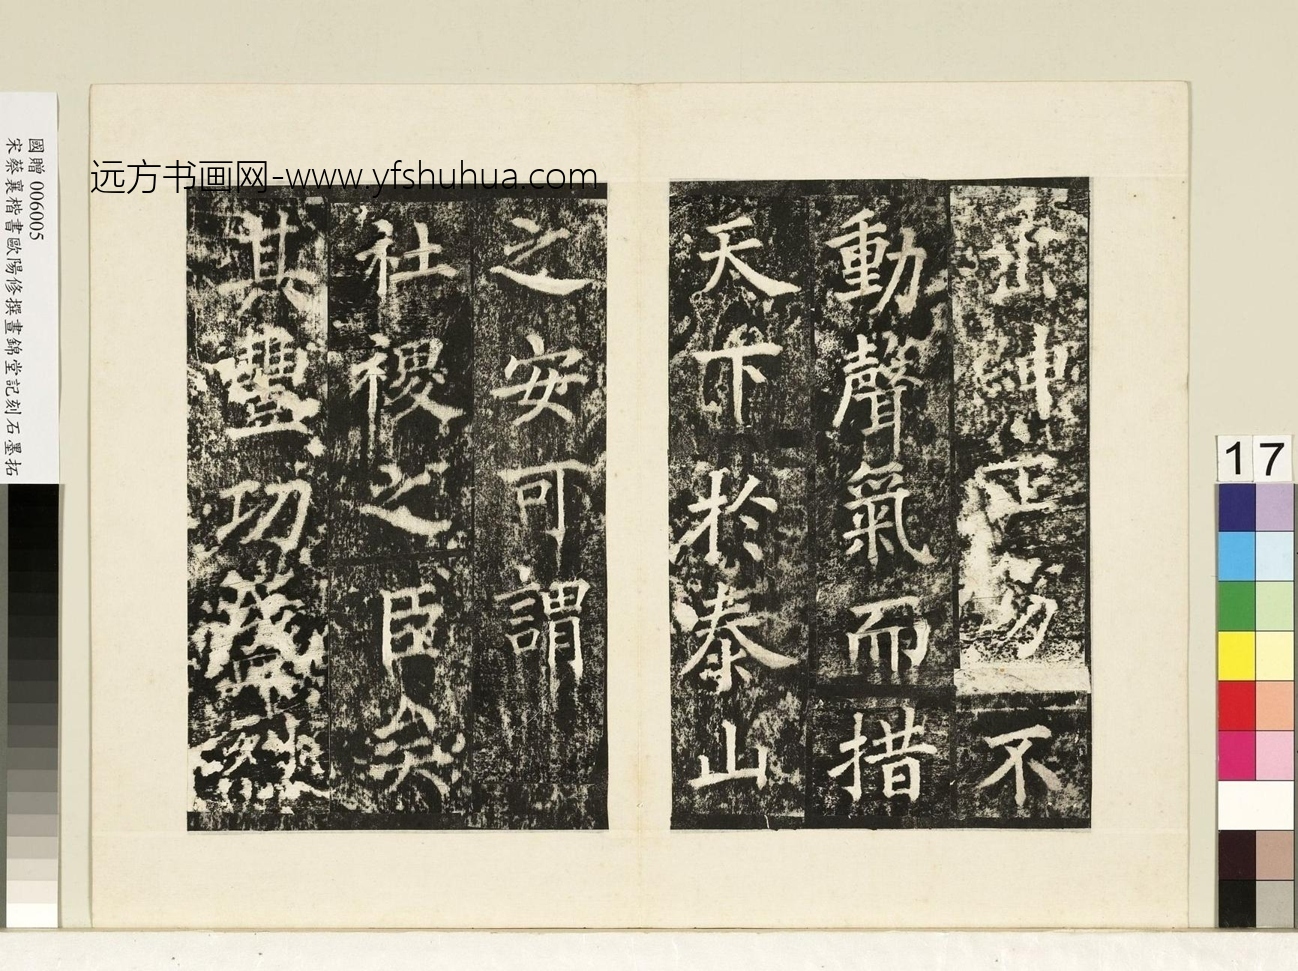 远方书画网-www.yfshuhua.com
垂紳正笏不
動聲氣而措
天下於泰山
之安可謂
社稷之臣矣
其豐功
國贈 006005
宋蔡襄楷書歐陽修撰晝錦堂記刻石墨拓
17